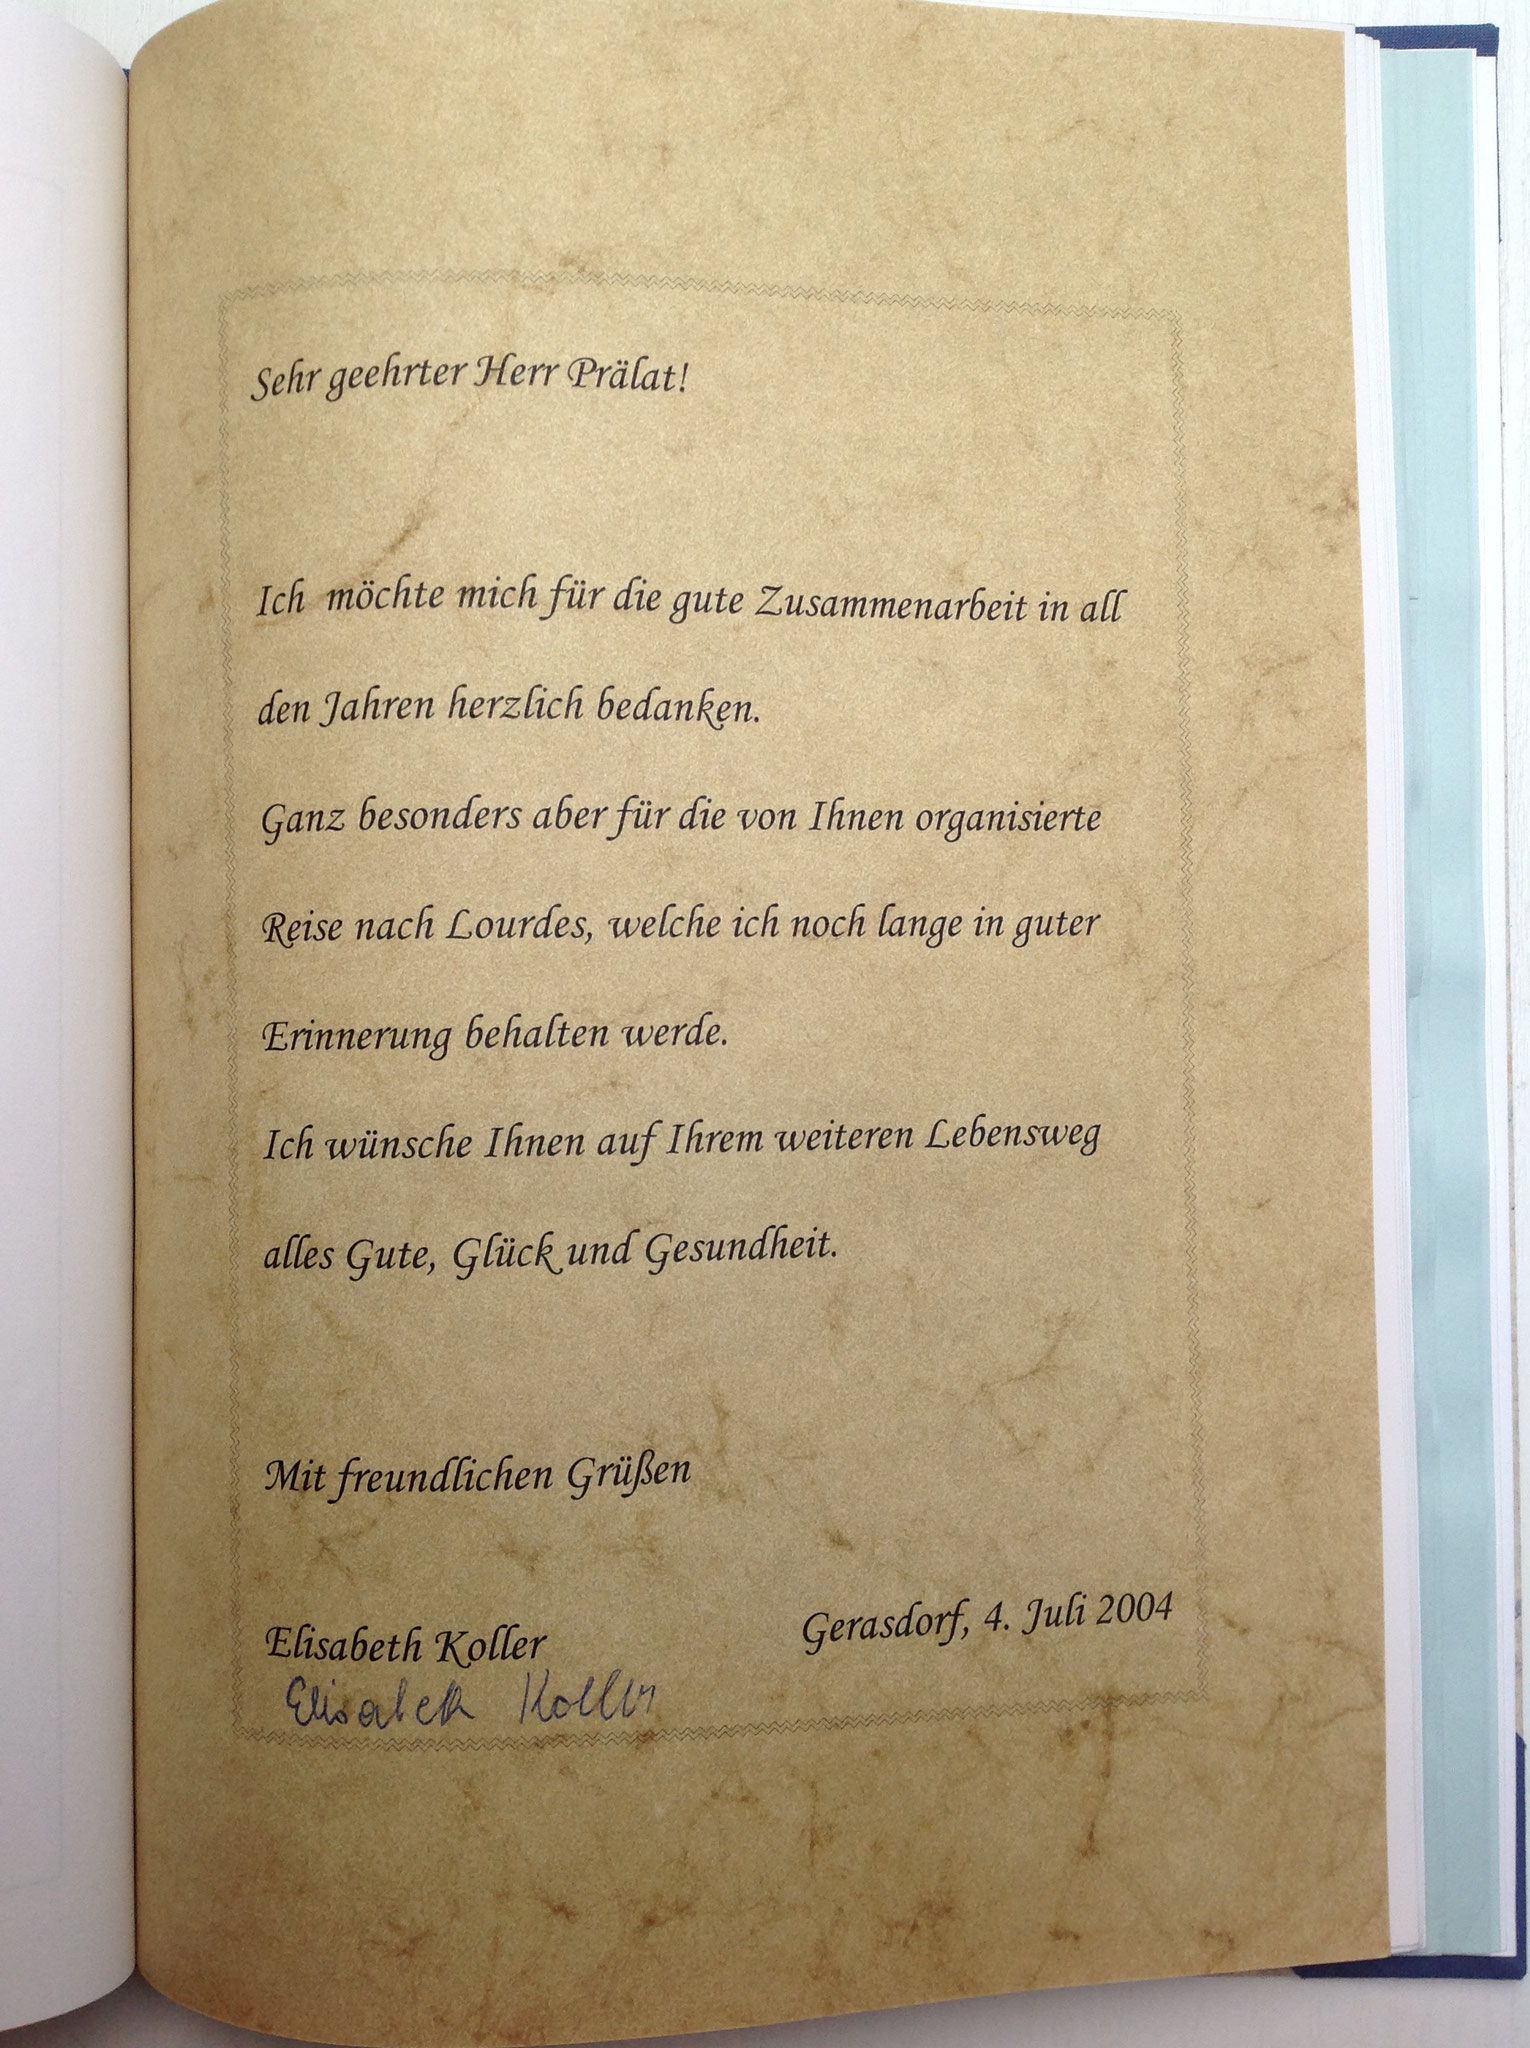 Sehr geehrter Herr Prälat!
Ich möchte mich für die gute Zusammenarbeit in all
den Jahren herzlich bedanken.
Ganz besonders aber für die von Ihnen organisierte
Reise nach Lourdes, welche ich noch lange in guter
Erinnerung behalten werde.
Ich wünsche Ihnen auf Ihrem weiteren Lebensweg
alles Gute, Glück und Gesundheit.
Mit freundlichen Grüßen
Elisabeth Koller
Gerasdorf, 4. Juli 2004
Elisabeth Koller